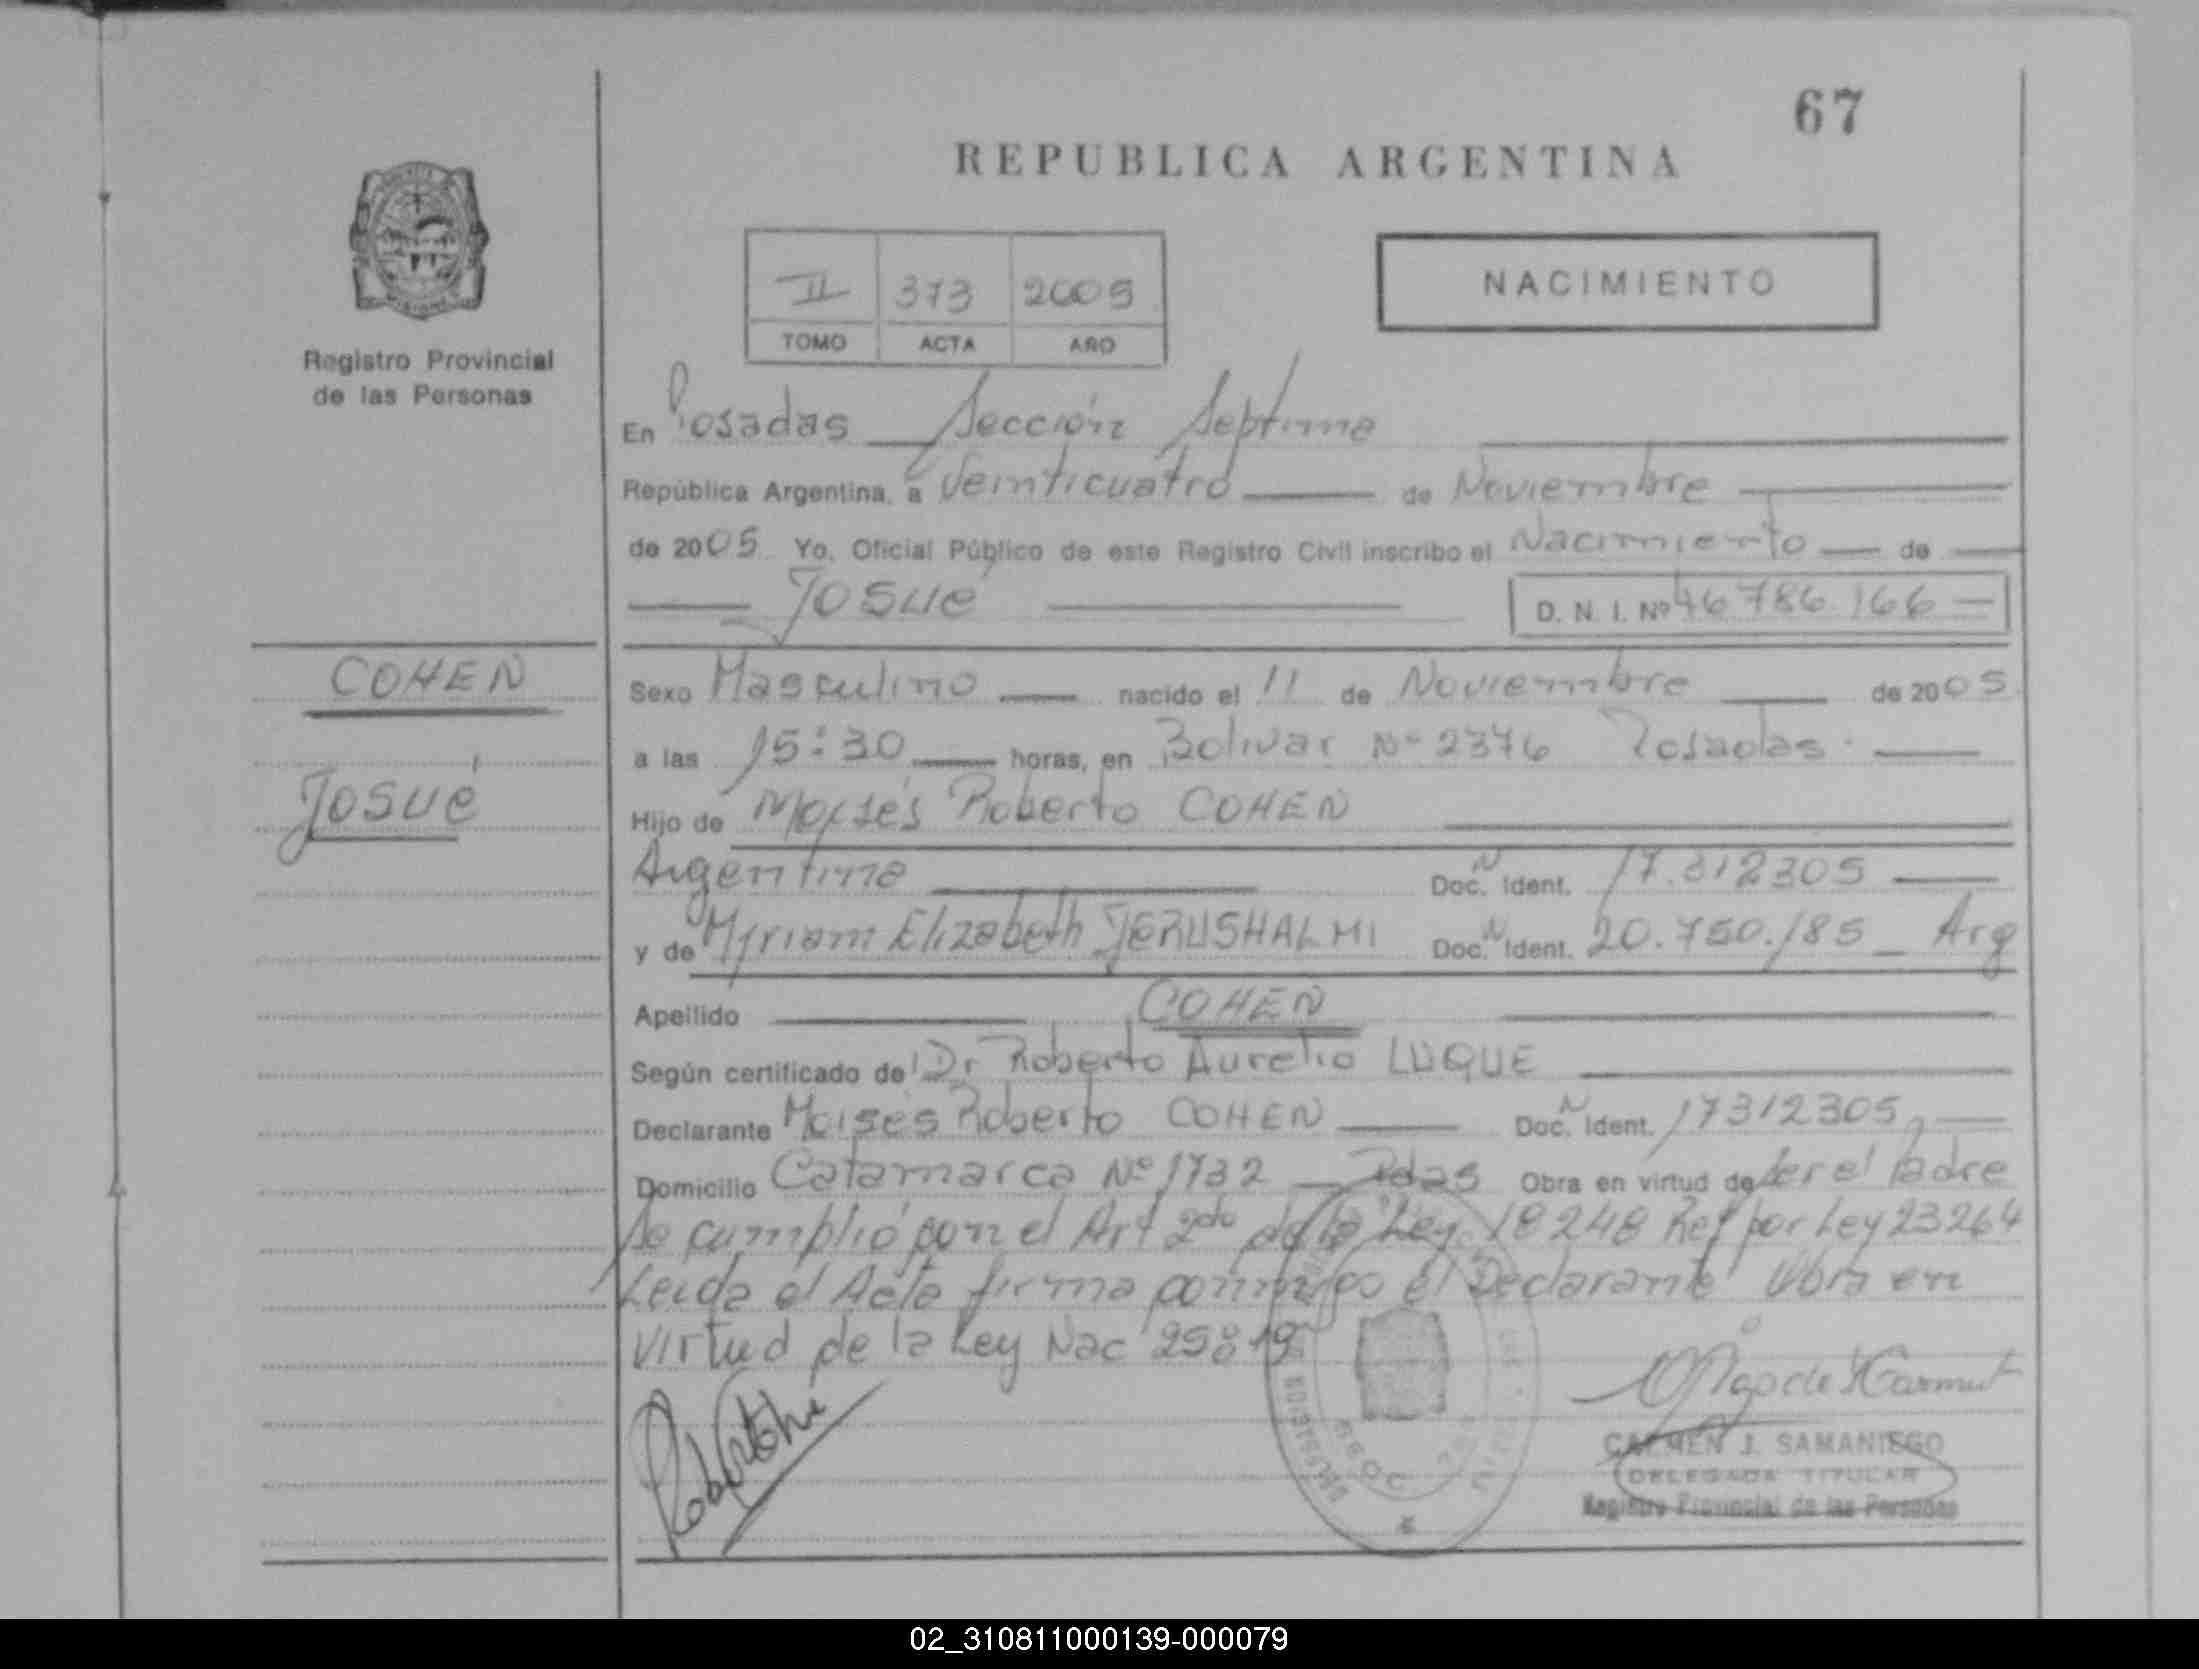 67
REPUBLICA ARGENTINA
II 373 2005
TOMO ACTA AÑO
NACIMIENTO
Registro Provincial
de las Personas
En Posadas Sección Septima
República Argentina, a Veinticuatro de Noviembre
de 2005 Yo, Oficial Público de este Registro Civil inscribo el Nacimiento de
Josué D. N. I. Nº 46786.166
COHEN
Josué
Sexo Masculino nacido el 11 de Noviembre de 2005
a las 15:30 horas, en Bolivar Nº 2376 Posadas.
Hijo de Moisés Roberto COHEN
Argentina Doc. N Ident. 17.312305
y de Myriam Elizabeth JERUSHALMI Doc. N Ident. 20.750.185 Arg
Apellido COHEN
Según certificado de Dr Roberto Aurelio LUQUE
Declarante Moisés Roberto COHEN Doc. N Ident. 17312305
Domicilio Catamarca Nº 1732 Pdas Obra en virtud de ser el Padre
Se cumplió con el Art 2do de la Ley 18248 Ref por Ley 23264
Leida el Acta firma conmigo el Declarante Obra en
virtud de la Ley Nac 25819
CARMEN J. SAMANIEGO
DELEGADA TITULAR
Registro Provincial de las Personas
02_310811000139-000079